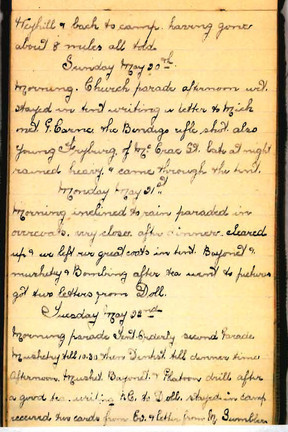 Weyhill & back to camp. having gone
about 8 miles all told.
Sunday May 20th.
Morning. Church parade afternoon wet.
stayed in tent writing a letter to Mick
met G. Carne the Bendigo rifle shot also
Young of Mc Crae St. late at night
rained heavy & came through the tent.
Monday May 21st
Morning inclined to rain paraded in
overcoats. very close. after dinner. cleared
up & we left our great coats in tent. Bayonet &
musketry & Bombing after tea went to pictures
got two letters from Doll.
Tuesday May 22nd
Morning parade Tent Orderly second Parade
Musketry till 10.30 then till dinner time.
Afternoon Musket. Bayonet. & Platoon drill after
a good tea. writing to Doll. stayed in camp
received two cards from & letter from